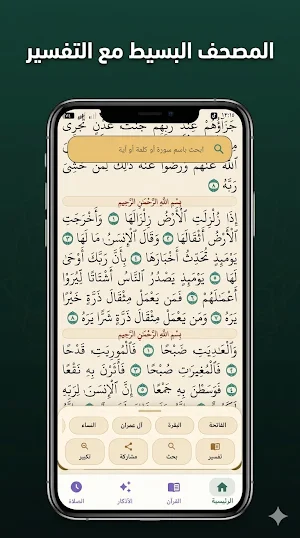 المصحف البسيط مع التفسير
٣:١٥
جَزَاؤُهُمْ عِندَ رَبِّهِمْ جَنَّٰتُ عَدْنٍ تَجْرِى
ابحث باسم سورة أو كلمة أو آية
ٱللَّهُ عَنْهُمْ وَرَضُوا۟ عَنْهُ ذَٰلِكَ لِمَنْ خَشِىَ
رَبَّهُۥ ٨
بِسْمِ اللَّهِ الرَّحْمَٰنِ الرَّحِيمِ
إِذَا زُلْزِلَتِ ٱلْأَرْضُ زِلْزَالَهَا ١ وَأَخْرَجَتِ
ٱلْأَرْضُ أَثْقَالَهَا ٢ وَقَالَ ٱلْإِنسَٰنُ مَا لَهَا ٣
يَوْمَئِذٍ تُحَدِّثُ أَخْبَارَهَا ٤ بِأَنَّ رَبَّكَ أَوْحَىٰ
لَهَا ٥ يَوْمَئِذٍ يَصْدُرُ ٱلنَّاسُ أَشْتَاتًا لِّيُرَوْا۟
أَعْمَٰلَهُمْ ٦ فَمَن يَعْمَلْ مِثْقَالَ ذَرَّةٍ خَيْرًا
يَرَهُۥ ٧ وَمَن يَعْمَلْ مِثْقَالَ ذَرَّةٍ شَرًّا يَرَهُۥ ٨
بِسْمِ اللَّهِ الرَّحْمَٰنِ الرَّحِيمِ
وَٱلْعَٰدِيَٰتِ ضَبْحًا ١ فَٱلْمُورِيَٰتِ قَدْحًا
٢ فَٱلْمُغِيرَٰتِ صُبْحًا ٣ فَأَثَرْنَ بِهِۦ نَقْعًا
٤ فَوَسَطْنَ بِهِۦ جَمْعًا ٥ إِنَّ ٱلْإِنسَٰنَ لِرَبِّهِۦ
الفاتحة البقرة آل عمران النساء
تفسير بحث مشاركة تكبير
الرئيسية القرآن الأذكار الصلاة